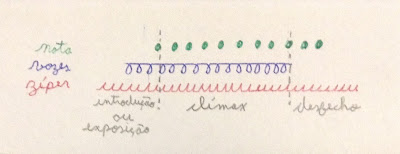 nota
vozes
zíper
introdução
ou
exposição
clímax
desfecho